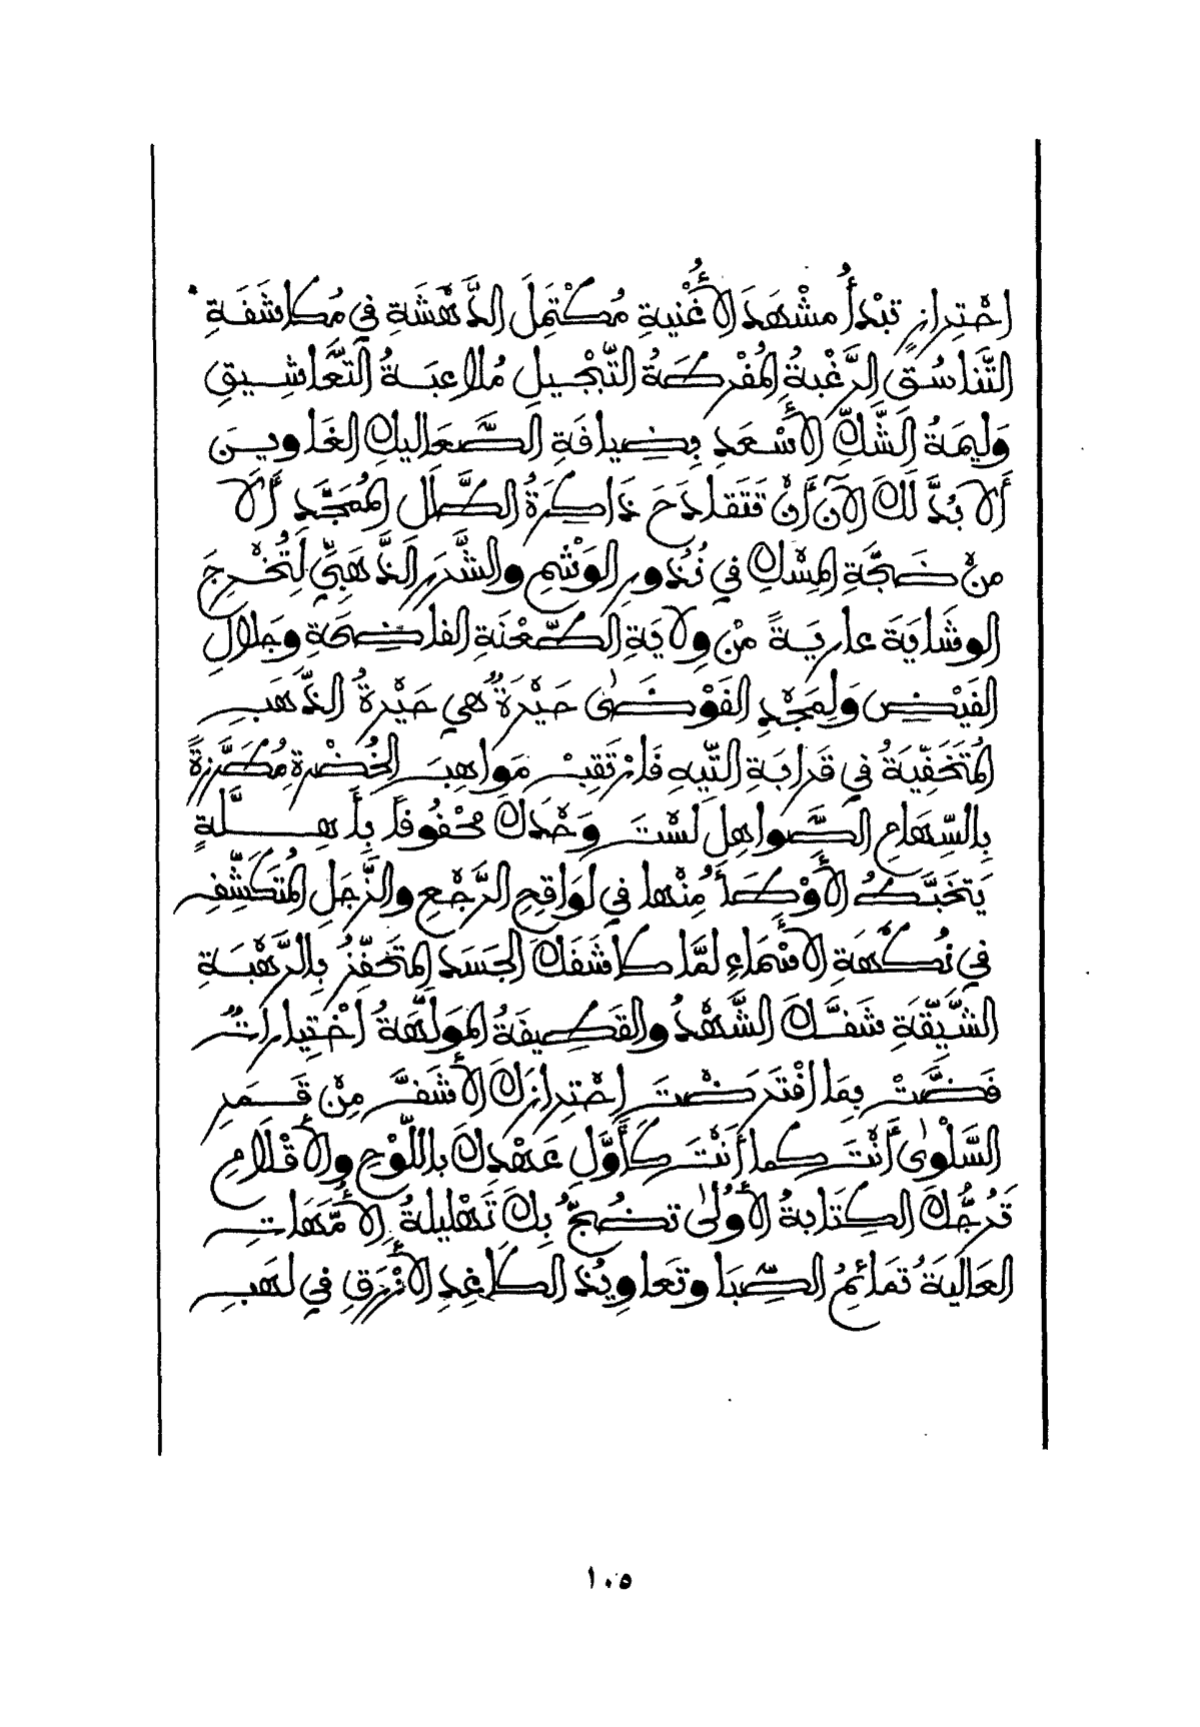 احْتِرازٍ تبْدأُ مشْهدَ الأُغْنيةِ مُكْتمِلَ الدَّهْشَةِ في مُكاشَفَةِ
التَّناسُقِ الرَّغْبةُ المُفْرطةُ التَّبْجيلِ مُلاعبَةُ التَّعاشيقِ
وَليمَةُ الشَّكِّ الأسْعَدِ بِضيافَةِ الصَّعَاليكِ الغَاوينَ
أَلا بُدَّ لكَ الآنَ أَنْ تَتَقادَحَ ذَاكِرَةُ الطَّلَلِ المُمَجَّدِ أَلا
منْ ضَجَّةِ المِسْكِ في نُذُورِ الوَشْمِ والشَّذَرِ الذَّهَبيِّ لِتُخْرِجَ
الوِشَايَةَ عاريَةً مْن وِلايَةِ الطَّعْنَةِ الفاضِحَةِ وجَلالِ
الفَيْضِ وَلِمَجْدِ الفَوْضَىٰ حَيْرَةٌ هي حَيْرةُ الذَّهَبِ
المُتَخَفِّيَةُ في قَرابَةِ التِّيهِ فَارْتَقِبْ مَواهِبَ الخُضْرةِ مُطَرَّزةً
بِالسِّهَامِ الصَّواهِلِ لسْتَ وَحْدَكَ محْفُوفاً بِأَهِلَّةٍ
يَتخَبَّطُ الأَوْطَأُ مِنْها في لوَاقِحِ الرَّجْعِ والزَّجَلِ المُتَكَشِّفِ
في نُكْهَةِ الأسْمَاءِ لمَّا كاشَفَكَ الجَسَدِ المتَحَفِّزُ بِالرَّهْبَةِ
الشَّيِّقَةِ شَفَّكَ الشَّهْدُ والقَطِيفَةُ المولَّهَةُ اخْتِياراتٌ
فَضَّتْ بِمَا افْتَرَضْتَ احْتِرازَكَ الأَشَفَّ مِنْ قَمَرِ
السَّلْوىٰ أَنْتَ كما أَنْتَ كَأَوَّلِ عَهْدِكَ باللَّوْحِ والأَقْلَامِ
تَرُجُّكَ الكِتَابةُ الأُولىٰ تضُجُّ بِكَ تَهْليلةُ الأُمَّهَاتِ
العَاليَةُ تمَائِمُ الصِّبَا وتعَاويذ الكَاغِدِ الأزْرَقِ في لهَبِ
١٠٥